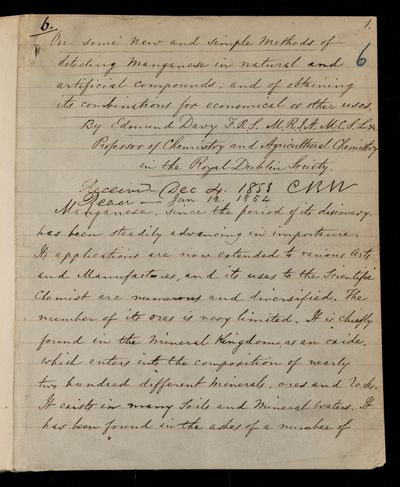 6. 1.
On some new and simple Methods of
6
detecting Manganese in natural and
artificial compounds; and of obtaining
its combinations for economical or other uses.
By Edmund Davy F.R.S. M.R.I.A. M.C.S.L &c
Professor of Chemistry and Agricultural Chemistry
in the Royal Dublin Society.
Received Dec 4. 1853 CRW
Read — Jan. 12 1854
Manganese, since the period of its discovery,
has been steadily advancing in importance.
Its applications are now extended to various Arts
and Manufactures, and its uses to the Scientific
Chemist are numerous and diversified. The
number of its ores is very limited. It is chiefly
found in the Mineral Kingdom, as an oxide,
which enters into the composition of nearly
two hundred different minerals, ores and rocks.
It exists in many Soils and Mineral waters. It
has been found in the ashes of a number of